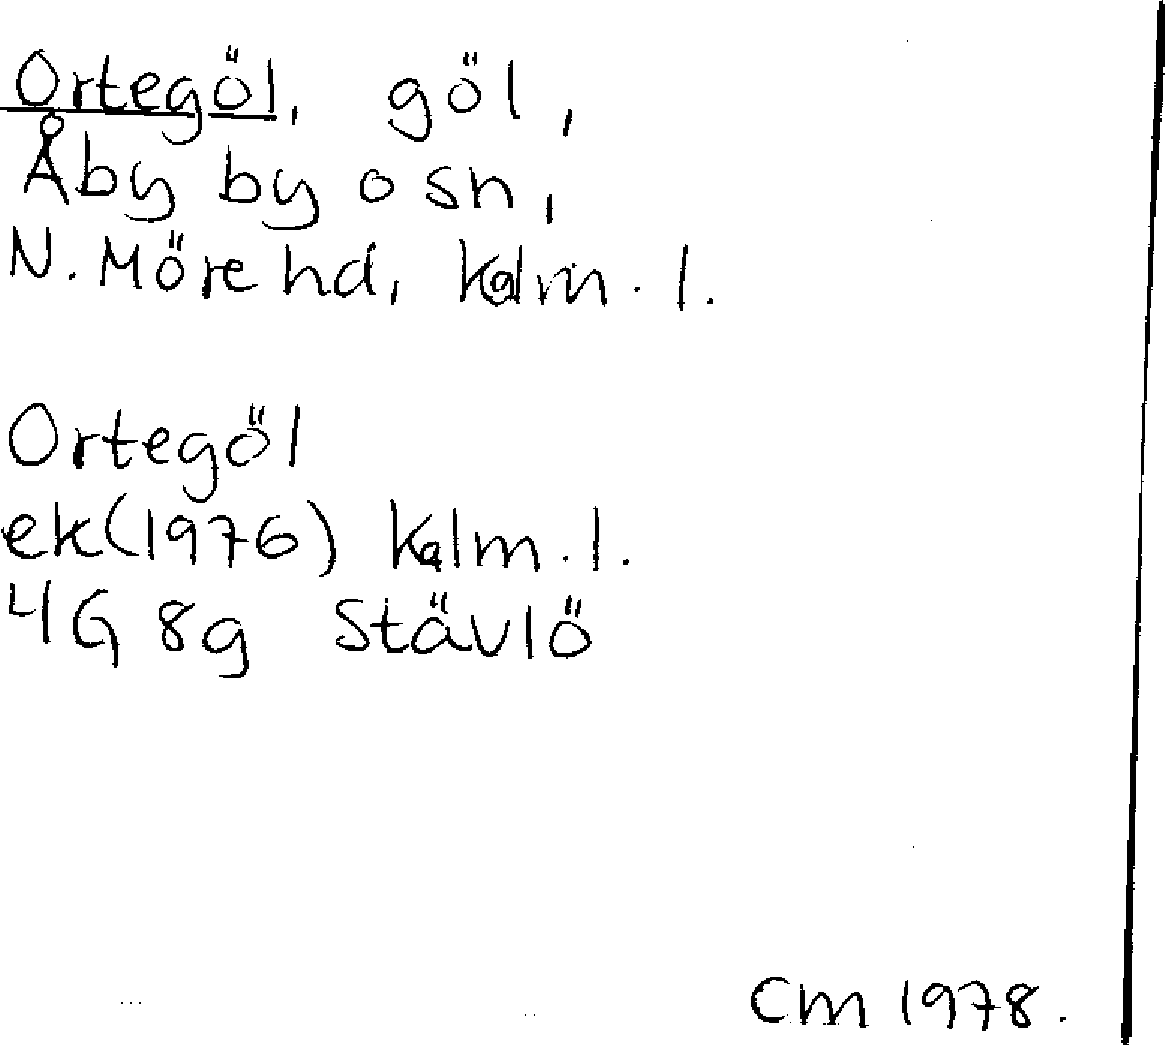 Ortegöl, göl,
Åby by o sn,
N. Möre hd, Kalm. l.
Ortegöl
ek(1976) Kalm. l.
4G 8g Stävlö
CM 1978.